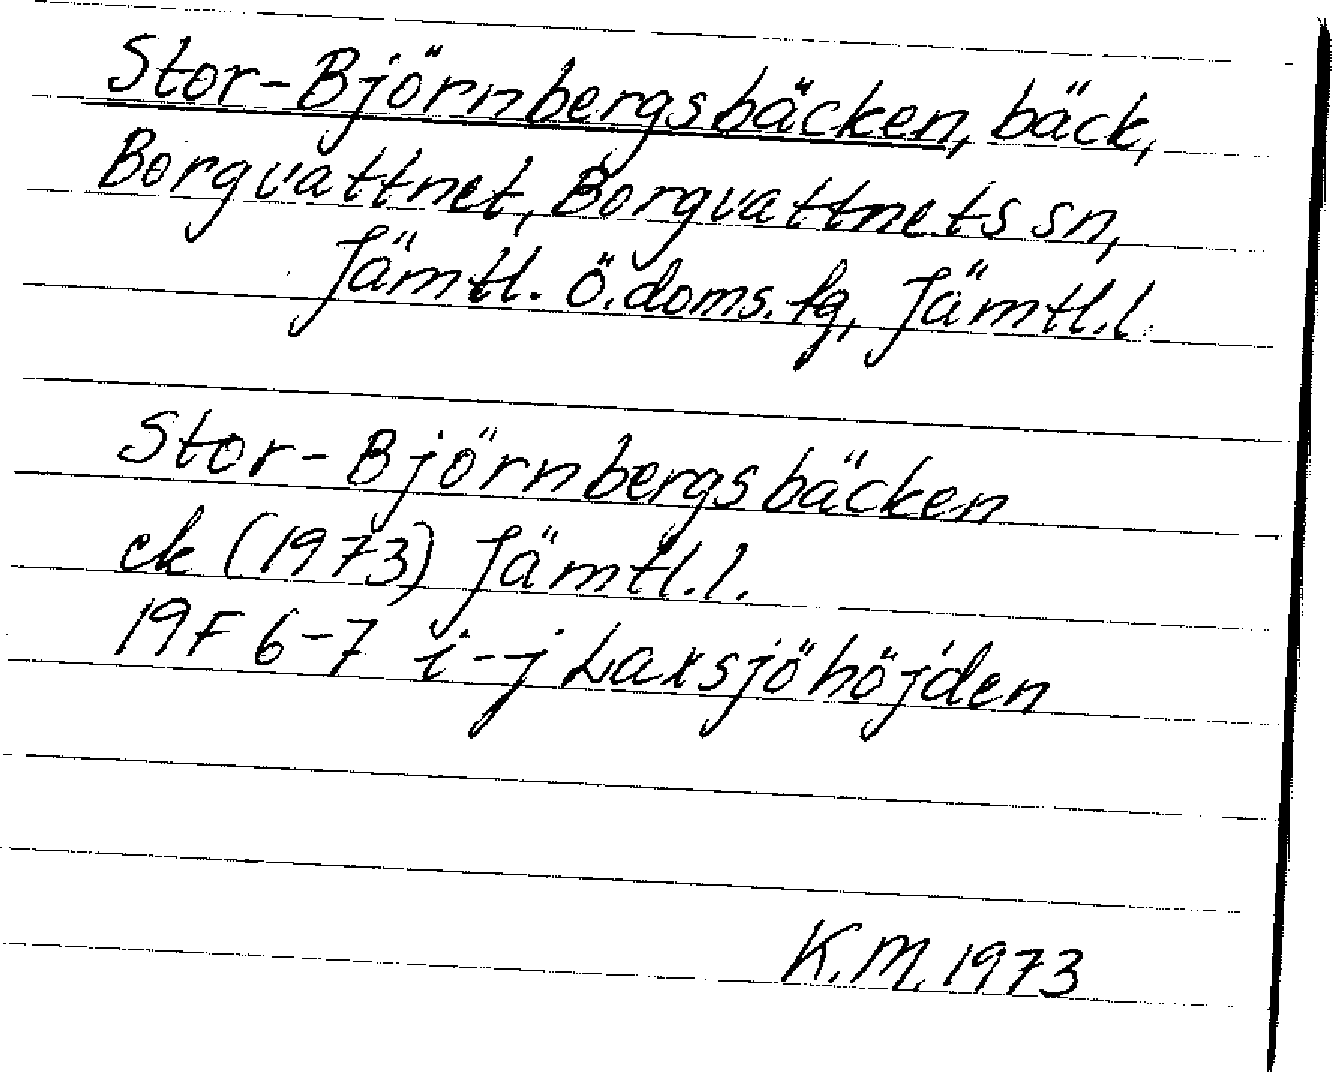 Stor-Björnbergsbäcken, bäck,
Borgvattnet, Borgvattnets sn,
Jämtl. ö. doms. tg, Jämtl. l.
Stor-Björnbergsbäcken
ek (1973) Jämtl. l.
19F 6-7 i-j Laxsjöhöjden
K.M. 1973